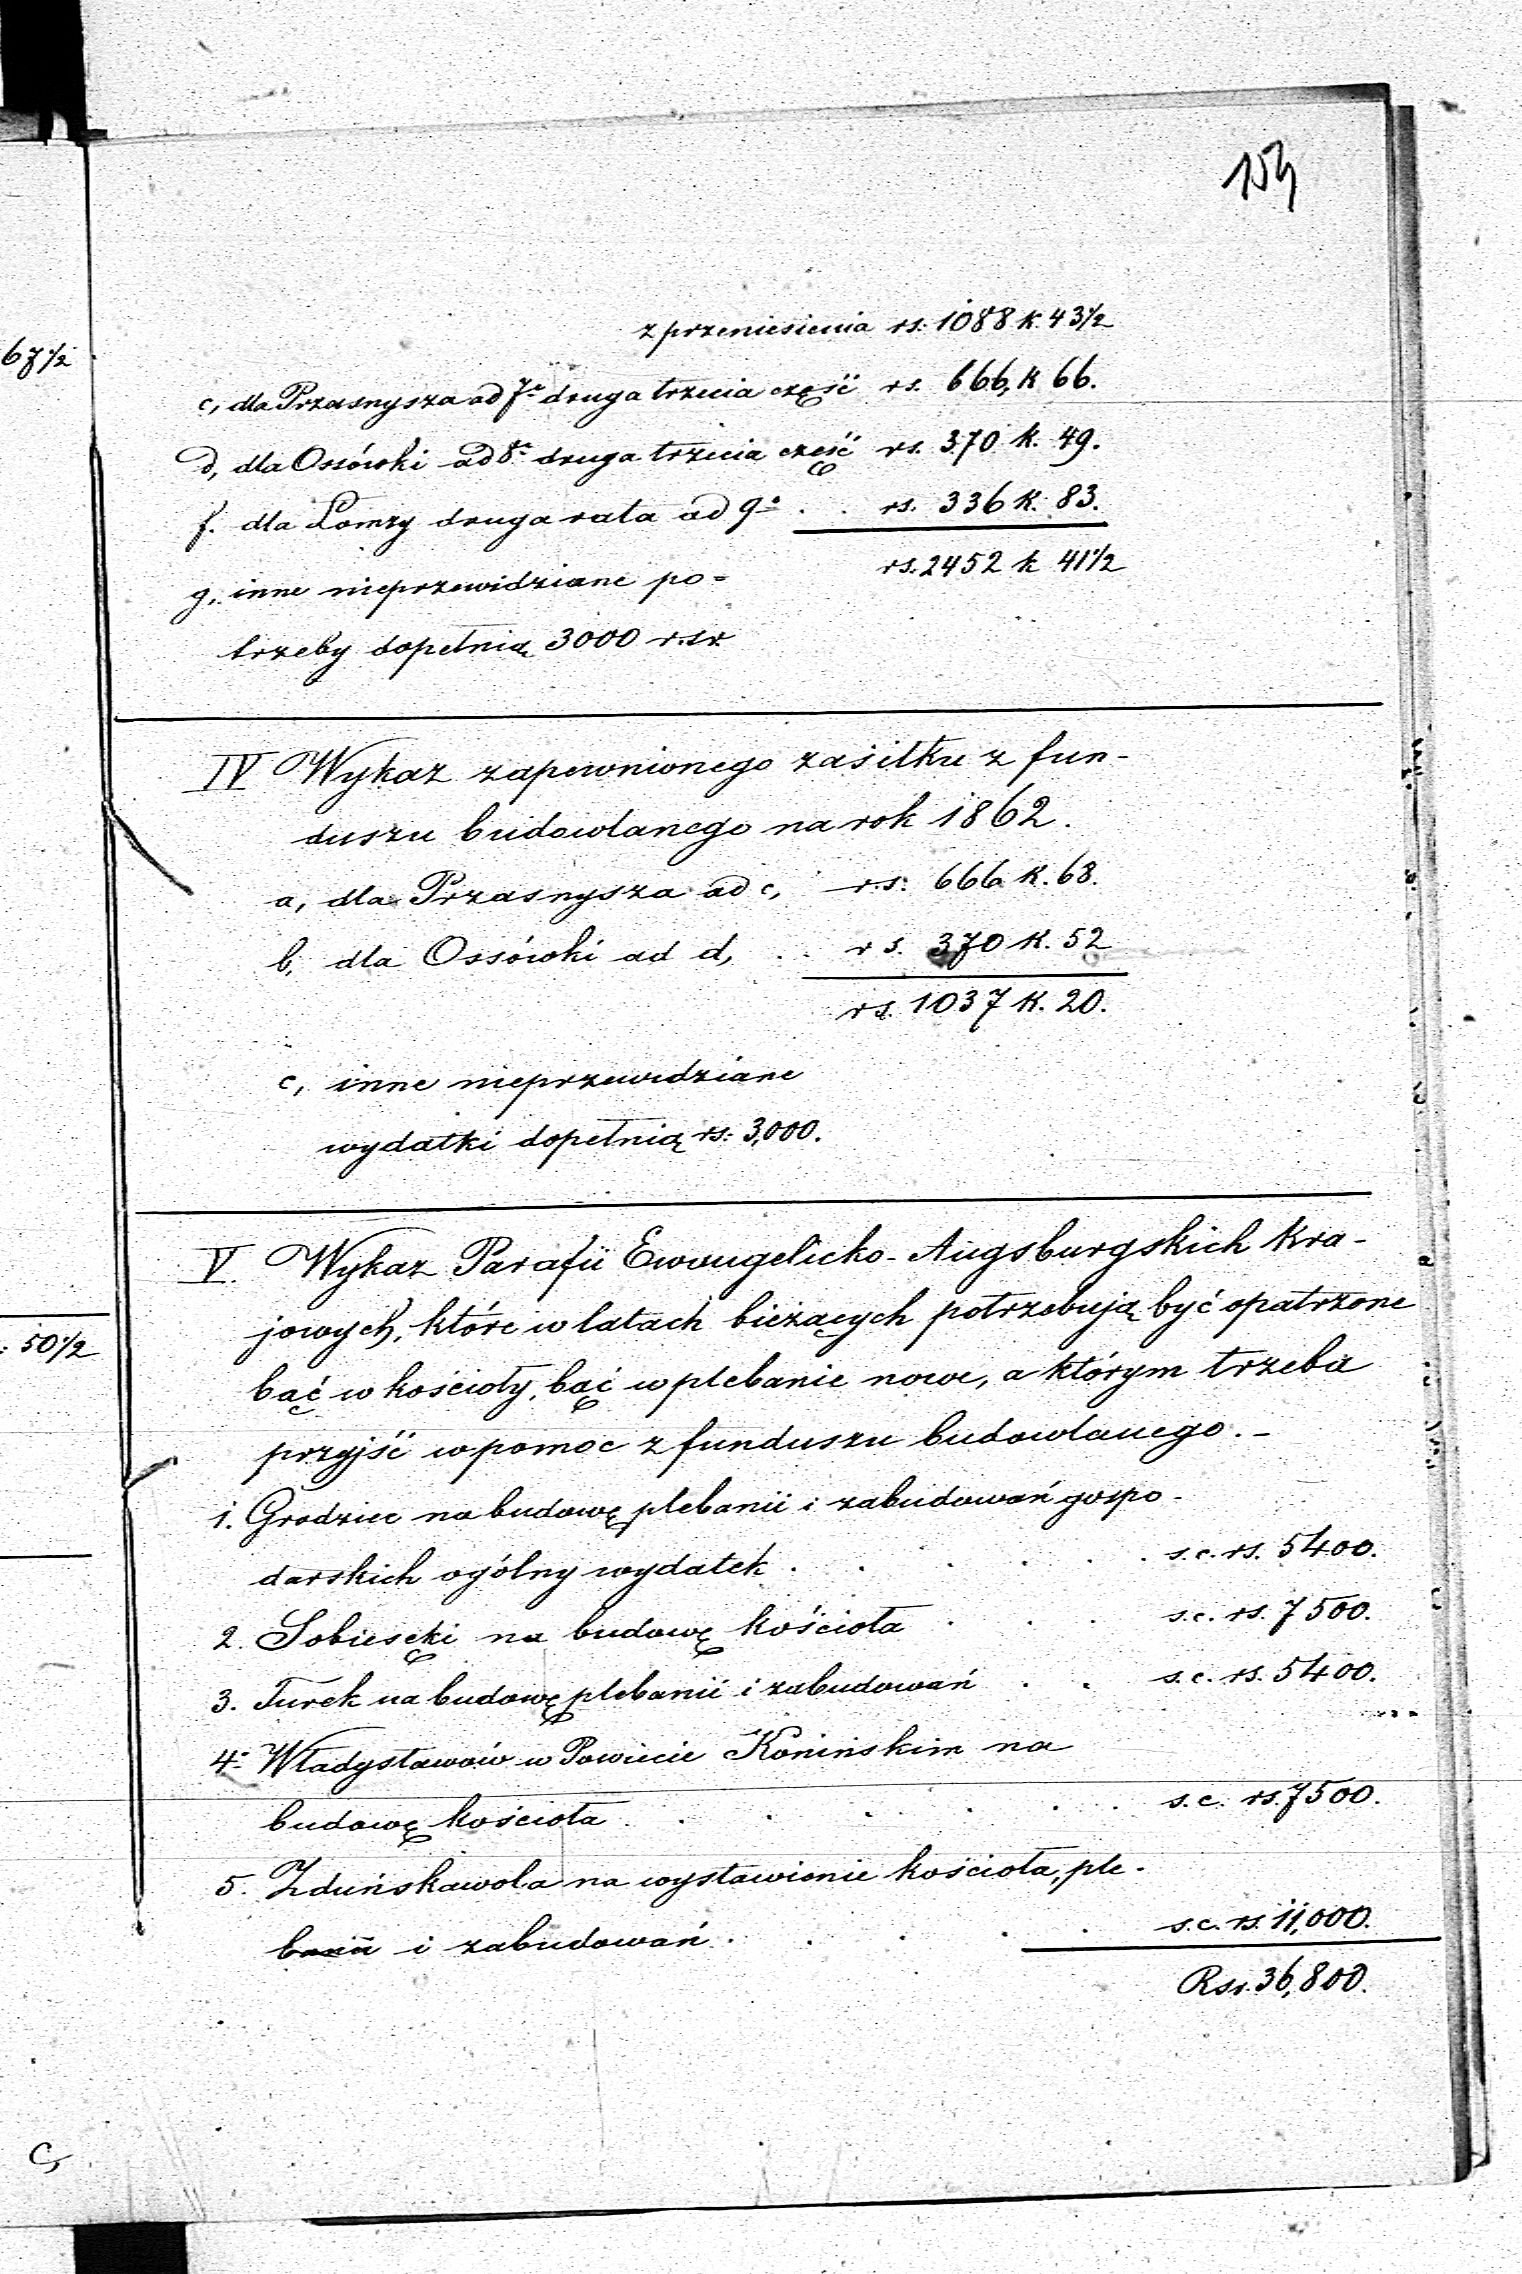 153
z przeniesienia rs. 1088 k. 43 1/2
67 1/2
c, dla Przasnysza ad 7º druga trzecia część rs. 666, k 66.
d, dla Ossówki ad 8º druga trzecia część rs. 370 k. 49.
f. dla Łomży druga rata ad 9º . . rs. 336 k. 83.
rs. 2452 k 41 1/2
g, inne nieprzewidziane po=
trzeby dopełnią 3000 r.sr.
IV Wykaz zapewnionego zasiłku z fun-
duszu budowlanego na rok 1862.
a, dla Przasnysza ad c, rs: 666 k. 68.
b, dla Ossówki ad d, . . rs. 370 k. 52
rs. 1037 k. 20.
c, inne nieprzewidziane
wydatki dopełnią rs: 3,000.
V. Wykaz Parafii Ewangelicko-Augsburgskich kra-
jowych, które w latach bieżących potrzebują być opatrzone
: 50 1/2
bąć w kościoły, bąć w plebanie nowe, a którym trzeba
przyjść w pomoc z funduszu budowlanego. -
1. Grodziec na budowę plebanii i zabudowań gospo-
darskich ogólny wydatek . . . . . . s.c. rs. 5400.
2. Sobiesęki na budowę kościoła . . . s.c. rs. 7500.
3. Turek na budowę plebanii i zabudowań . . s.c. rs. 5400.
4. Władysławów w Powiecie Konińskim na
budowę kościoła . . . . . . s.c. rs. 7500.
5. Zduńskawola na wystawienie kościoła, ple-
banii i zabudowań . . . . . s.c. rs. 11,000.
Rsr. 36,800.
c,